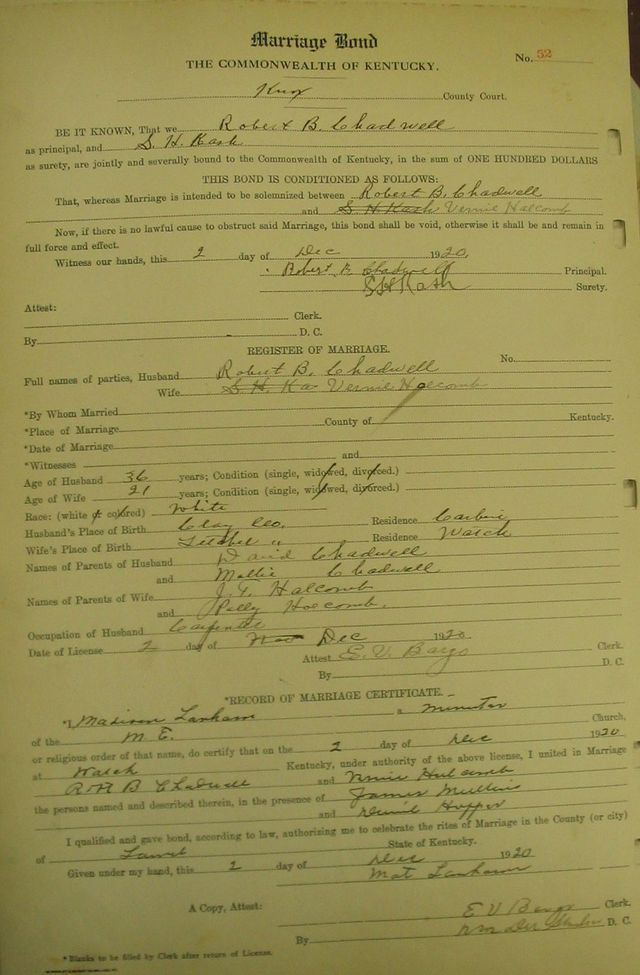 Marriage Bond
THE COMMONWEALTH OF KENTUCKY.
No. 52
Knox County Court.
BE IT KNOWN, That we Robert B. Chadwell
as principal, and S. H. Kash
as surety, are jointly and severally bound to the Commonwealth of Kentucky, in the sum of ONE HUNDRED DOLLARS
THIS BOND IS CONDITIONED AS FOLLOWS:
That, whereas Marriage is intended to be solemnized between Robert B. Chadwell
and S H Kash Vernie Halcomb
Now, if there is no lawful cause to obstruct said Marriage, this bond shall be void, otherwise it shall be and remain in
full force and effect.
Witness our hands, this 2 day of Dec 1920.
Robert B. Chadwell Principal.
S H Kash Surety.
Attest:
Clerk.
By D. C.
REGISTER OF MARRIAGE.
No.
Full names of parties, Husband Robert B. Chadwell
Wife S. H. Ka Vernie Holcomb
*By Whom Married
*Place of Marriage County of Kentucky.
*Date of Marriage
*Witnesses and
Age of Husband 36 years; Condition (single, widowed, divorced.)
Age of Wife 21 years; Condition (single, widowed, divorced.)
Race: (white or colored) White
Husband's Place of Birth Clay Co. Residence Corbin
Wife's Place of Birth Letcher " Residence Watch
Names of Parents of Husband David Chadwell
and Mollie Chadwell
Names of Parents of Wife J. T. Halcomb
and Polly Holcomb.
Occupation of Husband Carpenter
Date of License 2 day of Dec 1920
Attest Clerk.
By D. C.
*RECORD OF MARRIAGE CERTIFICATE.
*I, Madison Lanham a minister
of the M. E. Church,
or religious order of that name, do certify that on the 2 day of Dec 1920
at Watch Kentucky, under authority of the above license, I united in Marriage
B Chadwell and Vernie Halcomb
the persons named and described therein, in the presence of James Mullins
and Hopper
I qualified and gave bond, according to law, authorizing me to celebrate the rites of Marriage in the County (or city)
of Laurel State of Kentucky.
Given under my hand, this 2 day of Dec 1920
Mat Lanham
A Copy, Attest: E V Clerk.
By D. C.
*Blanks to be filled by Clerk after return of License.